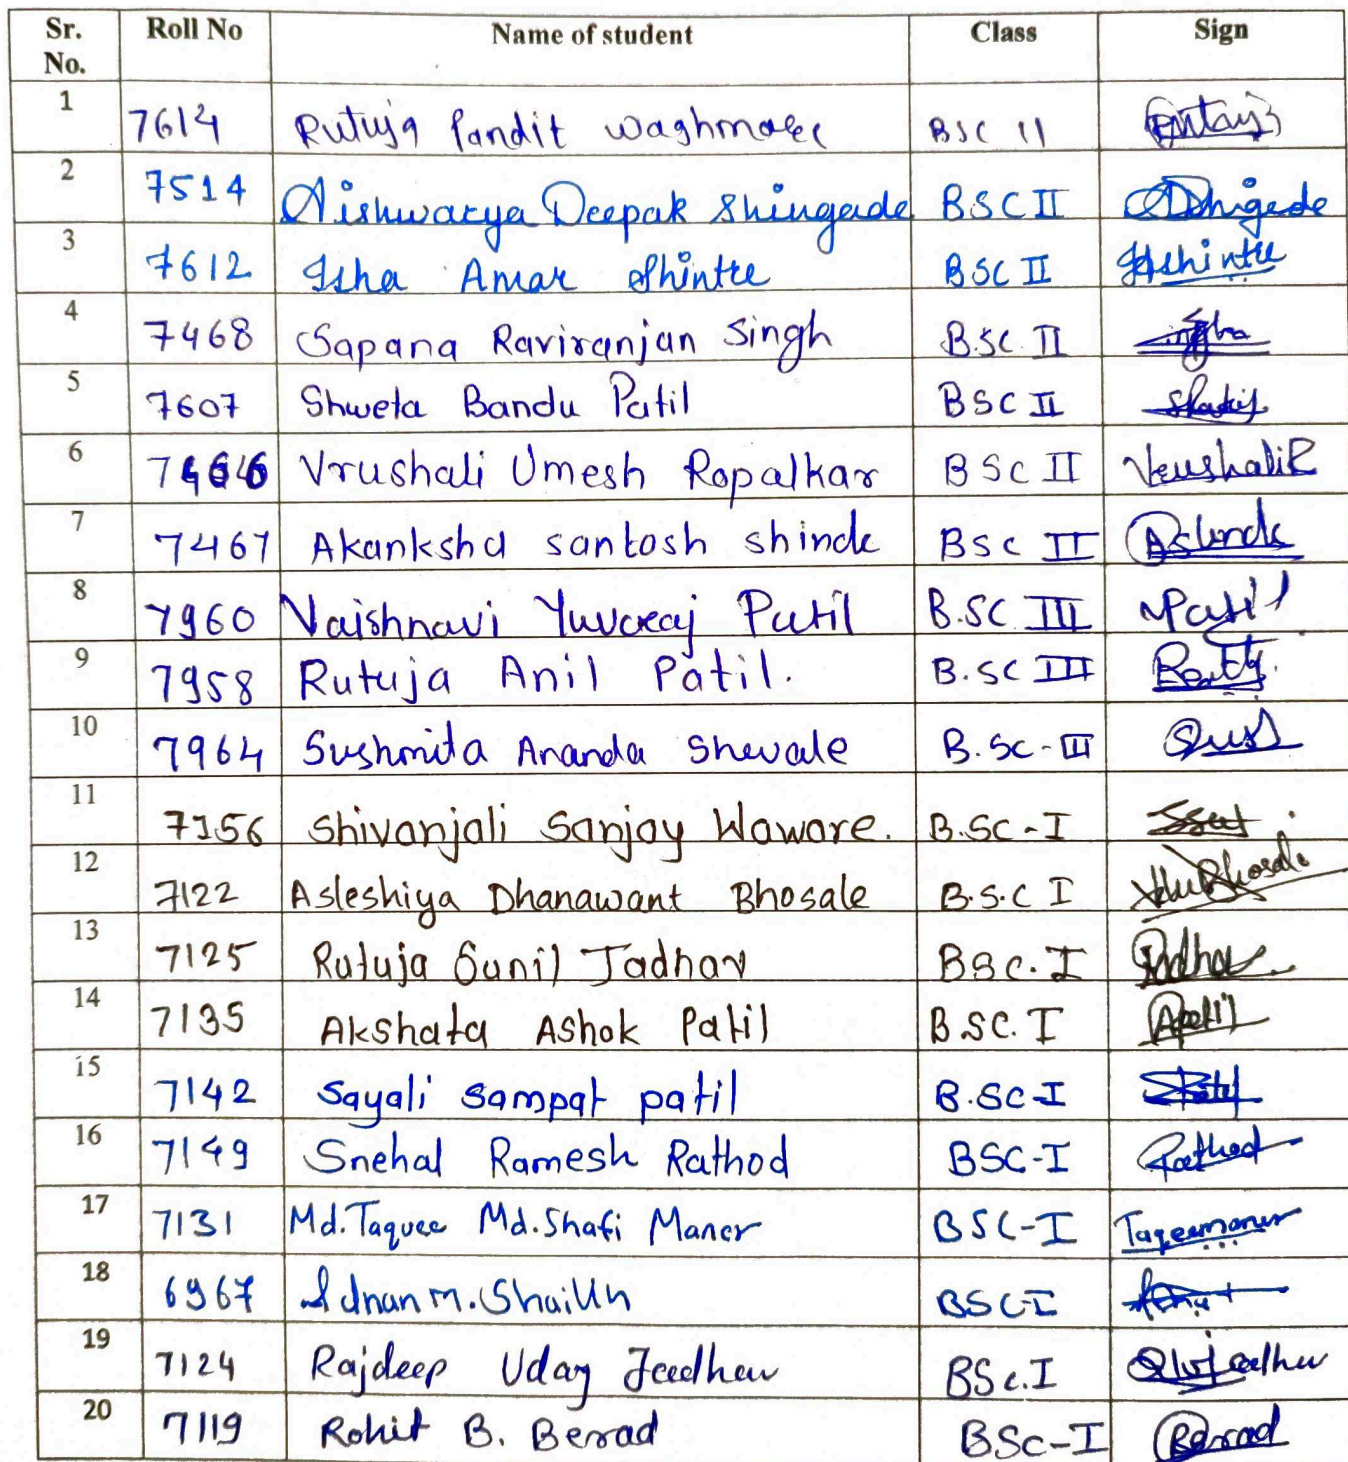 Sr. No. Roll No Name of student Class Sign
1 7614 Rutuja Pandit Waghmare BSC II
2 7514 Aishwarya Deepak Shingade BSC II
3 7612 Isha Amar Shintre BSC II AShintre
4 7468 Sapana Raviranjan Singh B.SC. II
5 7607 Shweta Bandu Patil BSC II
6 Vrushali Umesh Ropalkar BSC II VrushaliR
7 7467 Akanksha santosh shinde BSC II AShinde
8 7960 Vaishnavi Yuvraj Patil B.SC III VPatil
9 7958 Rutuja Anil Patil. B.SC III
10 7964 Sushmita Ananda Shevale B.SC-III
11 7156 Shivanjali Sanjay Waware. B.SC-I
12 7122 Asleshiya Dhanawant Bhosale B.S.C I
13 7125 Rutuja Sunil Jadhav BSC.I
14 7135 Akshata Ashok Patil B.SC.I APatil
15 7142 Sayali sampat patil B.SC-I
16 7149 Snehal Ramesh Rathod BSC-I Rathod
17 7131 Md.Taquee Md.Shafi Maner BSC-I Taqeemaner
18 6967 Adnan M. Shaikh BSC-I
19 7124 Rajdeep Uday Jadhav BSc.I
20 7119 Rohit B. Berad BSc-I Berad